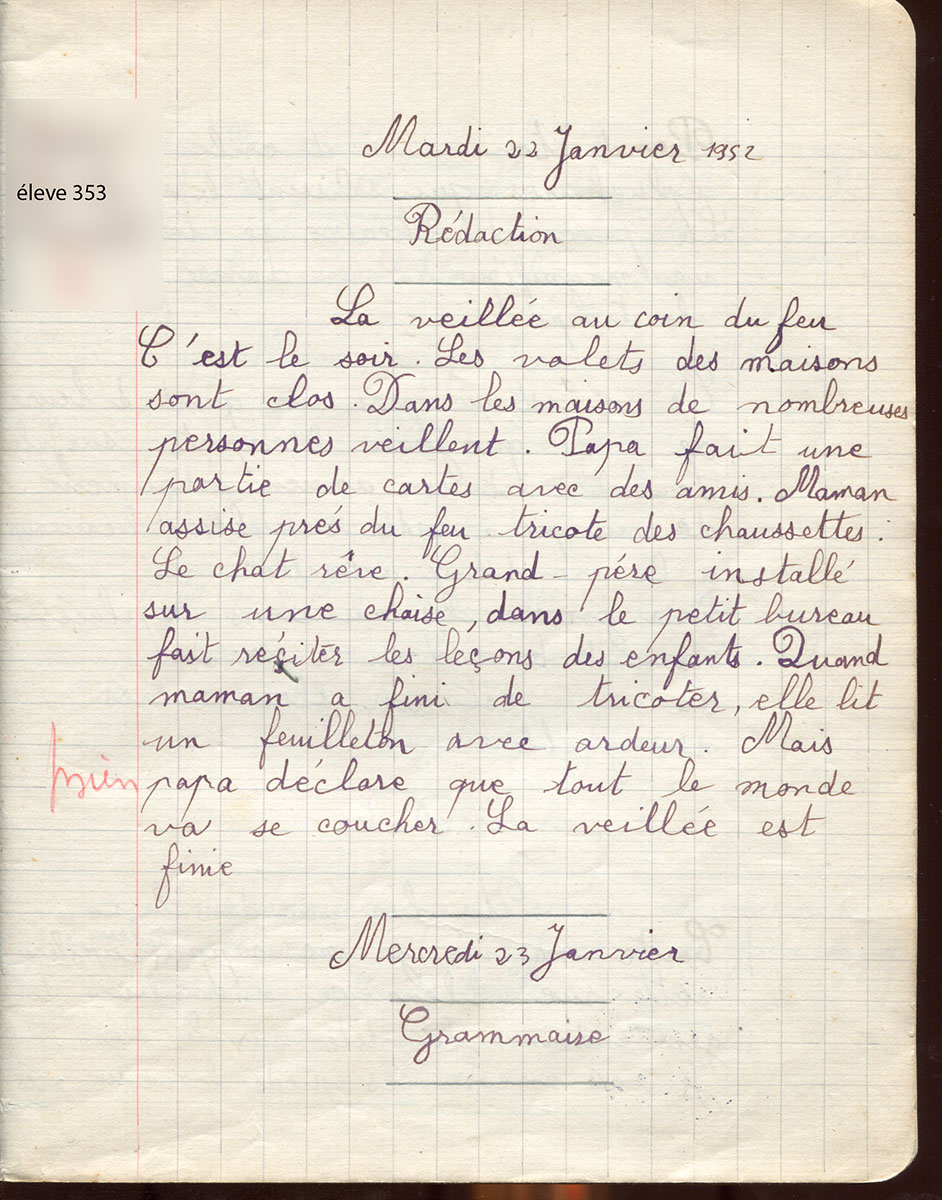 Mardi 22 Janvier 1952
éleve 353
Rédaction
La veillée au coin du feu
C'est le soir. Les volets des maisons
sont clos. Dans les maisons de nombreuses
personnes veillent. Papa fait une
partie de cartes avec des amis. Maman
assise prés du feu tricote des chaussettes.
Le chat rêve. Grand-pére installé
sur une chaise, dans le petit bureau
fait réciter les leçons des enfants. Quand
maman a fini de tricoter, elle lit
un feuilleton avec ardeur. Mais
bien
papa déclare que tout le monde
va se coucher. La veillée est
finie
Mercredi 23 Janvier
Grammaire